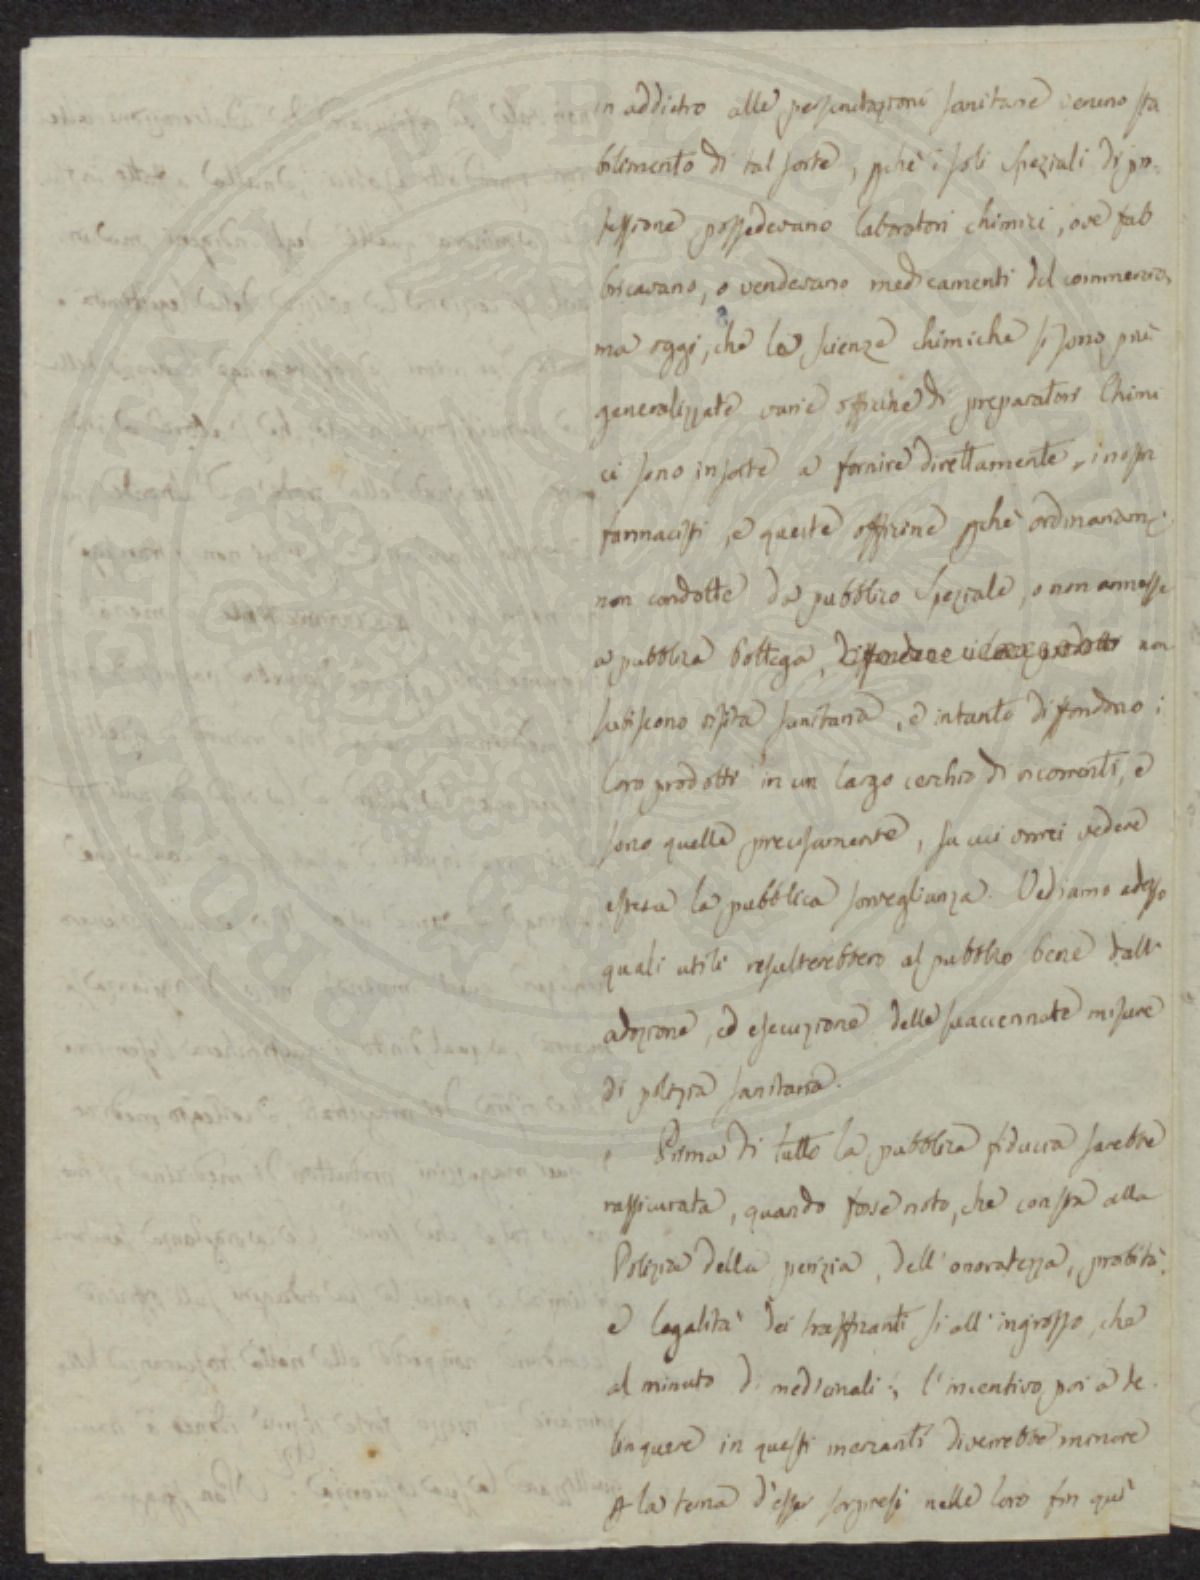 in addietro alle perlustrazioni sanitarie veruno sta
bilimento di tal sorte, pchè i soli speziali di pro-
fessione possedevano laboratori chimici, ove fab
bricavano, o vendevano medicamenti del commercio,
ma oggi, che le scienze chimiche si sono più
generalizzate varie officine di preparatori Chimi
ci sono insorte a fornire direttamente i nostri
farmacisti, e queste officine pchè ordinariam.
non condotte da pubblico Speziale, o non annesse
a pubblica bottega, non
subiscono visita sanitaria, e intanto diffondono i
loro prodotti in un largo cerchio di ricorrenti, e
sono quelle precisamente, su cui vorrei vedere
estesa la pubblica sorveglianza. Vediamo adesso
quali utili resulterebbero al pubblico bene dall'
adozione, ed esecuzione delle suaccennate misure
di polizia sanitaria.
Prima di tutto la pubblica fiducia sarebbe
rassicurata, quando fosse noto, che consta alla
Polizia della perizia, dell'onoratezza, probità,
e legalità dei trafficanti sì all'ingrosso, che
al minuto di medicinali; l'incentivo poi a de
linquere in questi mercanti diverrebbe minore
p la tema d'esser sorpresi nelle loro fin quì
PROSPERITATI PUBLICAE AUGENDAE